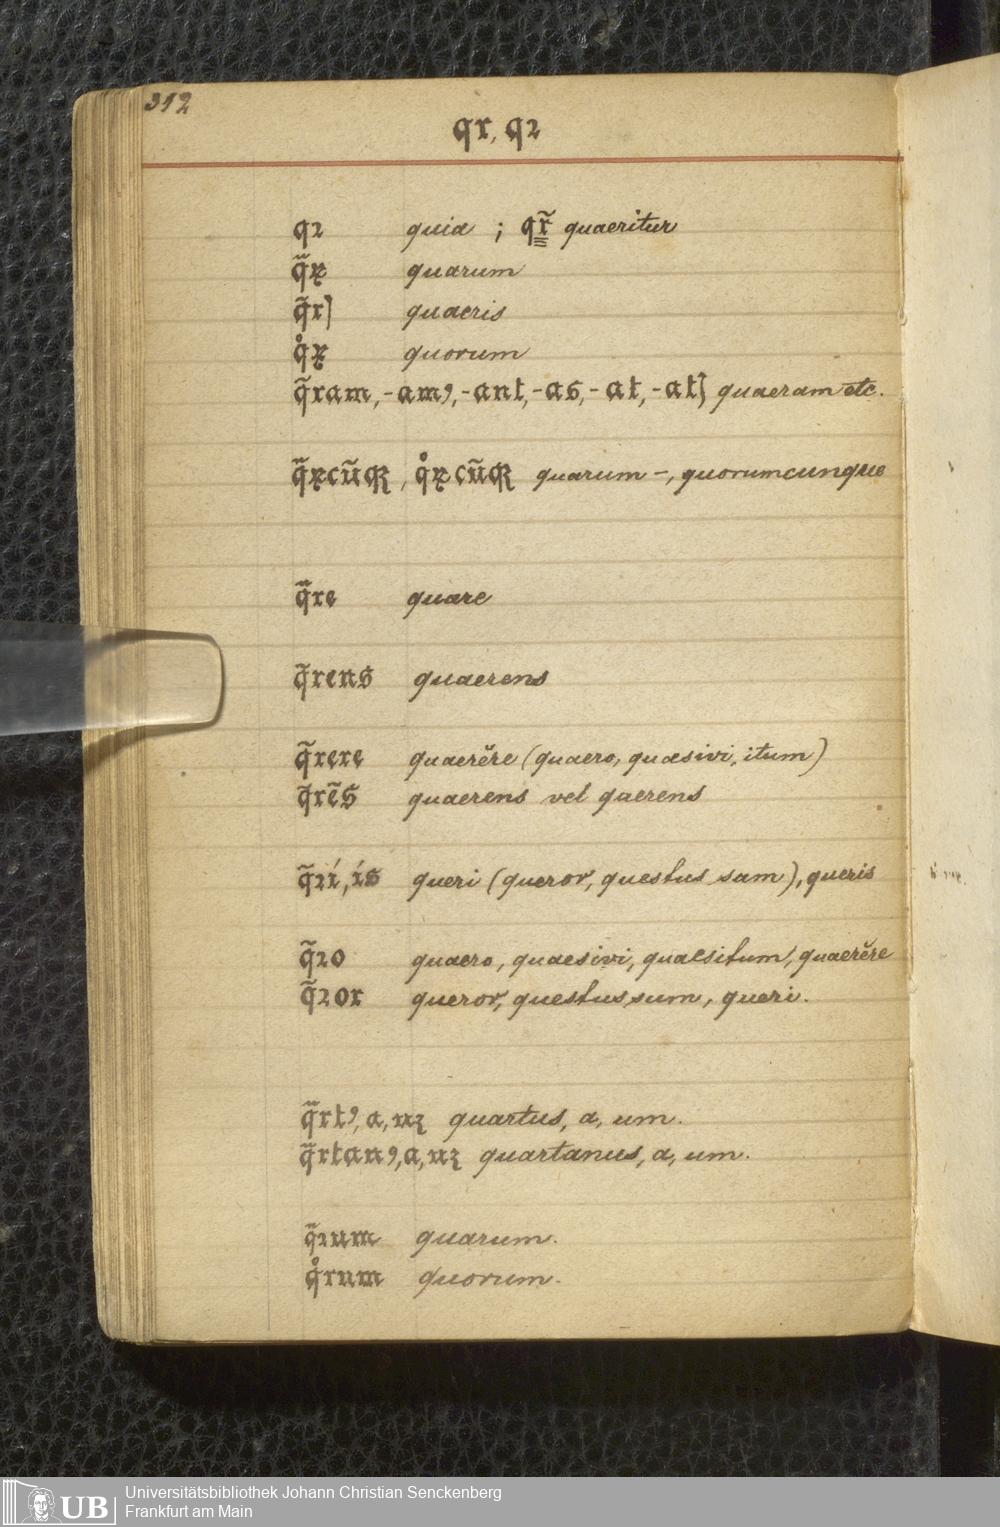 312
qr, qꝛ
qꝛ quia ; qr̃ quaeritur
q̃ꝝ quarum
q̃rꝭ quaeris
q̊ꝝ quorum
q̃ram, -amꝰ, -ant, -as, -at, -atꝭ quaeram etc.
q̃ꝝcũqꝫ, q̊ꝝcũqꝫ quarum -, quorumcunque
q̃re quare
q̃rens quaerens
q̃rere quaerĕre (quaero, quaesivi, itum)
q̃rẽs quaerens vel qaerens
q̃ꝛí, ís queri (queror, questus sum), queris
q̃ꝛo quaero, quaesivi, quaesitum, quaerĕre
q̃ꝛor queror, questus sum, queri.
q̃rtꝰ, a, uꝫ quartus, a, um.
q̃rtanꝰ, a, uꝫ quartanus, a, um.
q̃ꝛum quarum.
q̊rum quorum.
UB Universitätsbibliothek Johann Christian Senckenberg
Frankfurt am Main